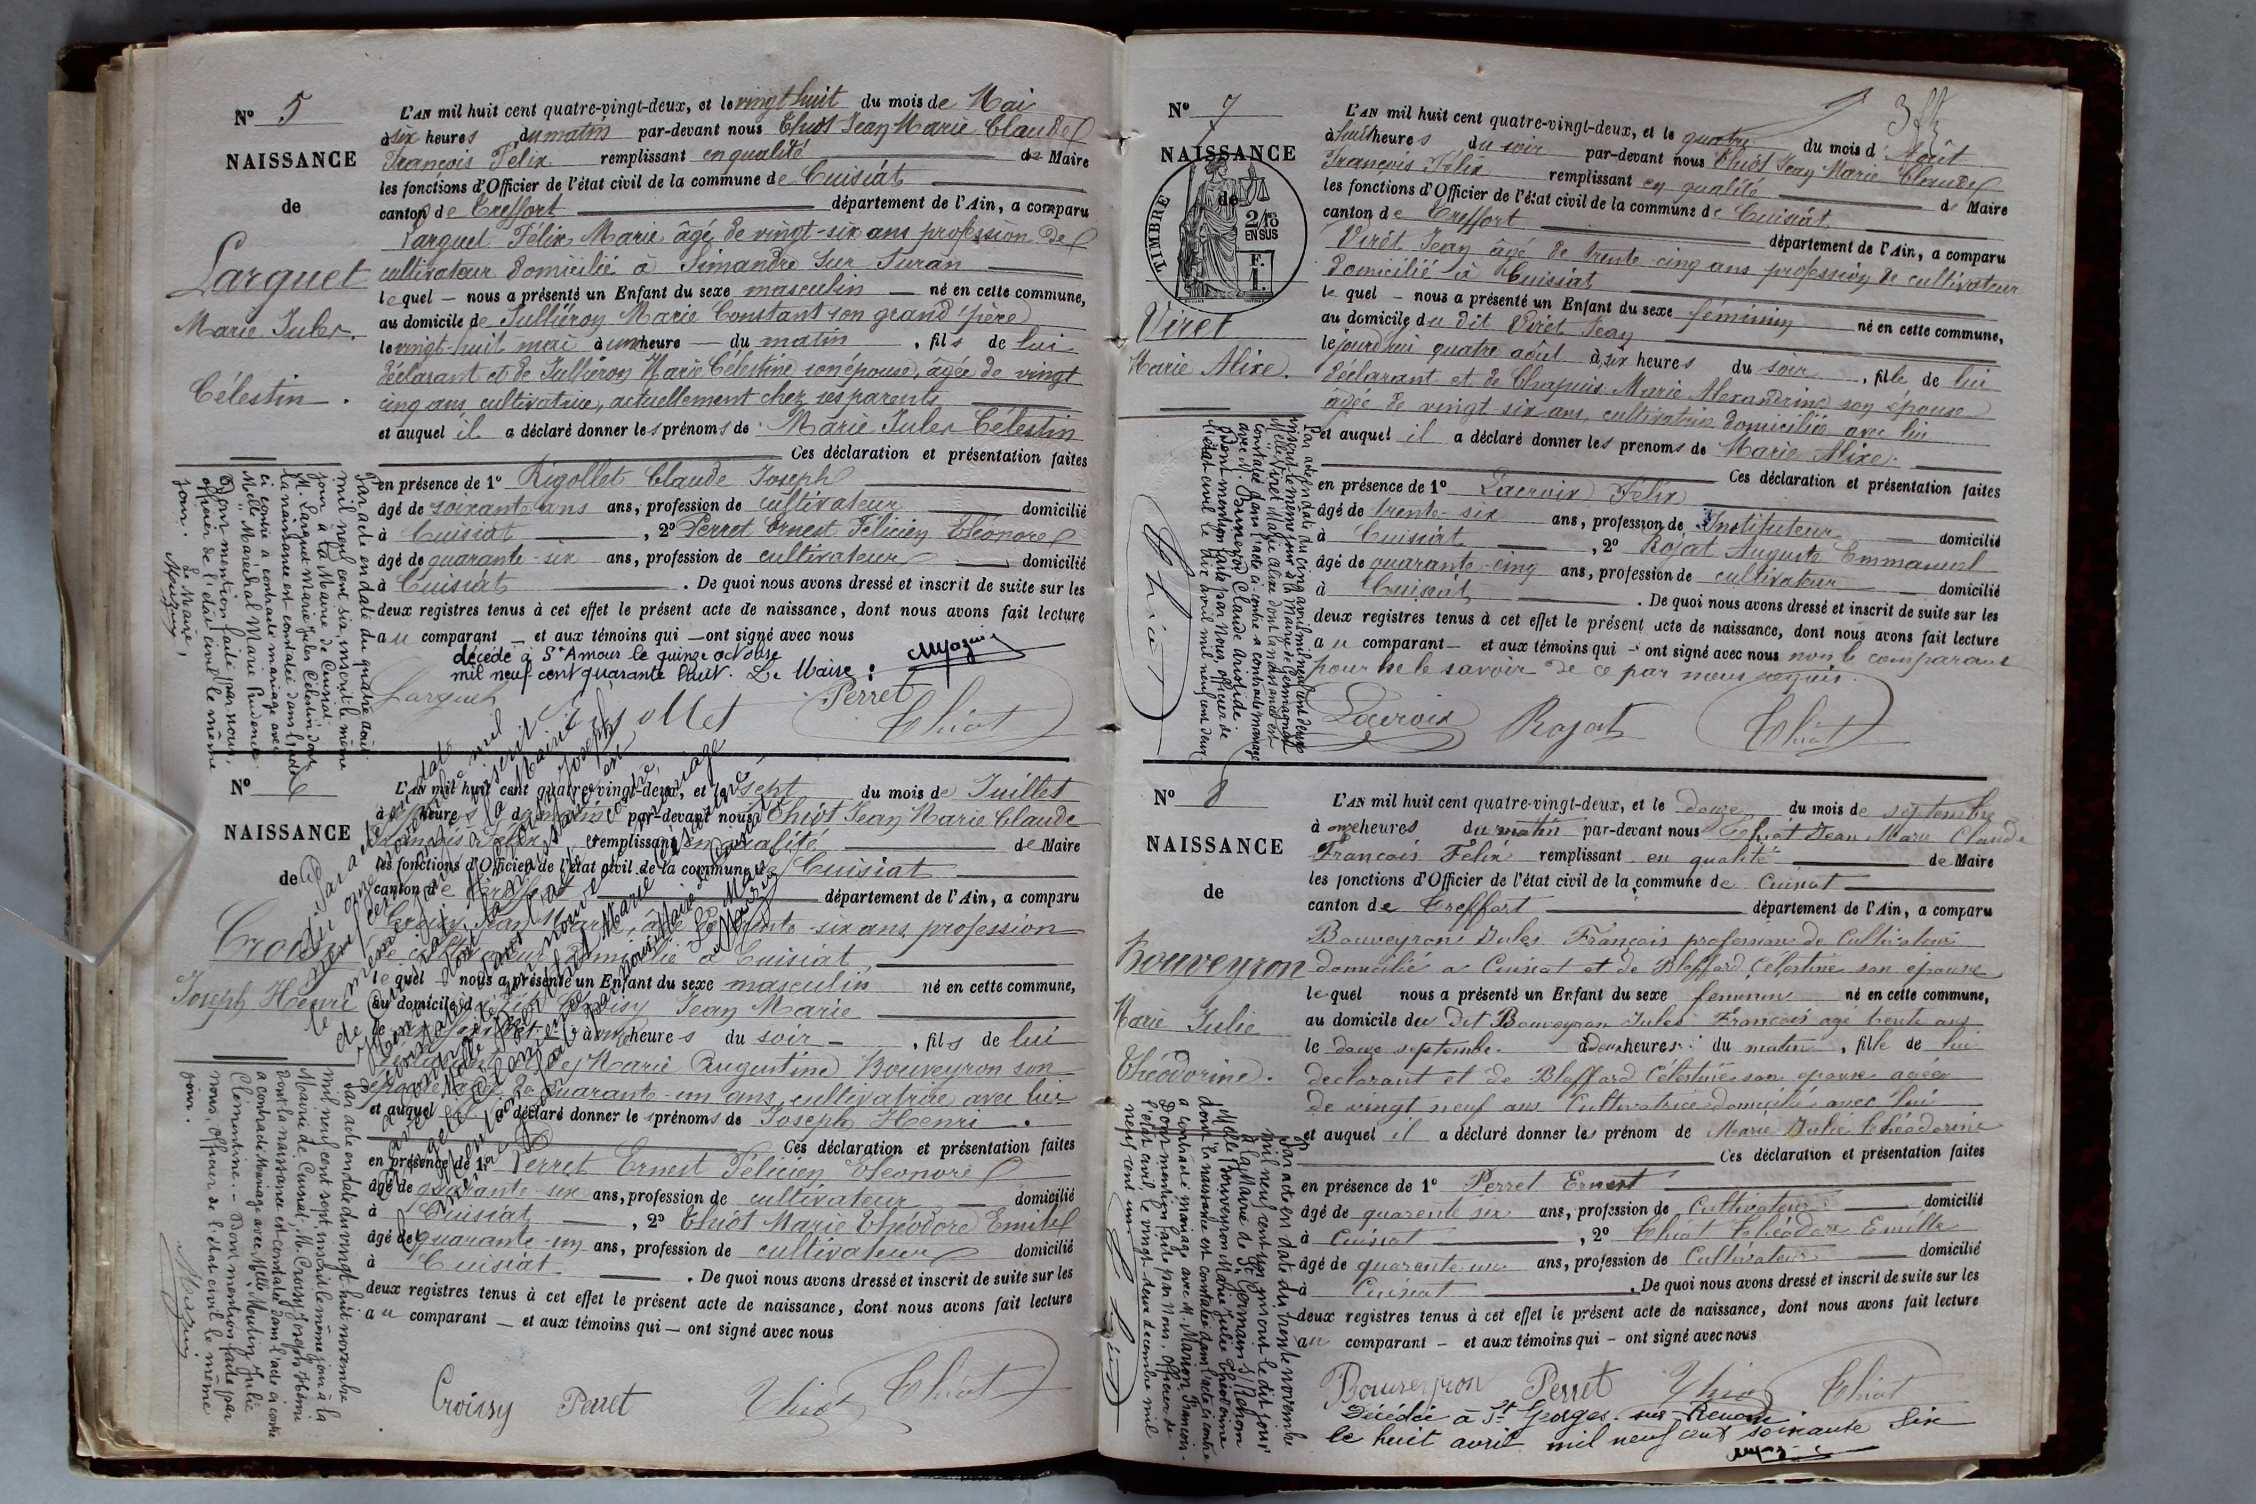 N° 5
NAISSANCE
de
Larguet
Marie Jules
Célestin.
L'AN mil huit cent quatre-vingt-deux, et le vingt huit du mois de Mai
à six heures du matin par-devant nous Thiot Jean Marie Claude
François Félix remplissant en qualité de Maire
les fonctions d'Officier de l'état civil de la commune de Cuisiat
canton de Treffort département de l'Ain, a comparu
Larguet Félix Marie âgé de vingt-six ans profession de
cultivateur domicilié à Simandre sur Suran
lequel nous a présenté un Enfant du sexe masculin né en cette commune,
au domicile de Julliéron Marie Constant son grand'père
le vingt huit mai à une heure du matin, fils de lui
déclarant et de Julliéron Marie Célestine son épouse, âgée de vingt
cinq ans, cultivatrice, actuellement chez ses parents
et auquel il a déclaré donner les prénoms de Marie Jules Célestin
Ces déclaration et présentation faites
en présence de 1° Rigollet Claude Joseph
âgé de soixante ans ans, profession de cultivateur domicilié
à Cuisiat, 2° Perret Ernest Félicien Eléonore
âgé de quarante-six ans, profession de cultivateur domicilié
à Cuisiat. De quoi nous avons dressé et inscrit de suite sur les
deux registres tenus à cet effet le présent acte de naissance, dont nous avons fait lecture
au comparant et aux témoins qui ont signé avec nous
décédé à St Amour le quinze octobre
mil neuf cent quarante huit. Le Maire :
Larguet Rigollet Perret Thiot
Par acte en date du quatre août
mil neuf cent six, inscrit le même
jour à la Mairie de Cuisiat
M. Larguet Marie Jules Célestin dont
la naissance est constatée dans l'acte
ci contre a contracté mariage avec
Melle Maréchal Marie Prudence
Dont mention faite par nous,
officier de l'état civil le même
jour. Le Maire,
Mazuy
N° 6
NAISSANCE
de
Croissy
Joseph Henri
L'AN mil huit cent quatre-vingt-deux, et le sept du mois de Juillet
heures du matin par-devant nous Thiot Jean Marie Claude
François Félix remplissant en qualité de Maire
les fonctions d'Officier de l'état civil de la commune de Cuisiat
canton de Treffort département de l'Ain, a comparu
Croissy Jean Marie, âgé de trente-six ans profession
de cultivateur domicilié à Cuisiat
lequel nous a présenté un Enfant du sexe masculin né en cette commune,
au domicile de Croissy Jean Marie
à onze heures du soir, fils de lui
déclarant et de Marie Augustine Bouveyron son
épouse âgée de quarante-un ans, cultivatrice avec lui
et auquel il a déclaré donner les prénoms de Joseph Henri.
Ces déclaration et présentation faites
en présence de 1° Perret Ernest Félicien Eléonore
âgé de quarante-six ans, profession de cultivateur domicilié
à Cuisiat, 2° Thiot Marie Théodore Emile
âgé de quarante-un ans, profession de cultivateur domicilié
à Cuisiat. De quoi nous avons dressé et inscrit de suite sur les
deux registres tenus à cet effet le présent acte de naissance, dont nous avons fait lecture
au comparant et aux témoins qui ont signé avec nous
Croissy Perret Thiot Thiot
Par acte en date du vingt huit novembre
mil neuf cent sept, inscrit le même jour à la
Mairie de Cuisiat, M. Croissy Joseph Henri
dont la naissance est constatée dans l'acte ci contre
a contracté mariage avec Melle Moulin Julie
Clémentine. Dont mention faite par
nous, officier de l'état civil le même
jour.
Mazuy
N° 7
NAISSANCE
de
TIMBRE
2/10
EN SUS
F.
1.
Viret
Marie Alixe.
L'AN mil huit cent quatre-vingt-deux, et le quatre du mois d'Août
à huit heures du soir par-devant nous Thiot Jean Marie Claude
François Félix remplissant en qualité de Maire
les fonctions d'Officier de l'état civil de la commune de Cuisiat
canton de Treffort département de l'Ain, a comparu
Virét Jean âgé de trente-cinq ans profession de cultivateur
domicilié à Cuisiat
lequel nous a présenté un Enfant du sexe féminin né en cette commune,
au domicile du dit Viret Jean
le jourd'hui quatre août à six heures du soir, fille de lui
déclarant et de Chapuis Marie Alexandrine son épouse
agée de vingt six ans, cultivatrice domiciliée avec lui
et auquel il a déclaré donner les prénoms de Marie Alixe.
Ces déclaration et présentation faites
en présence de 1° Lacroix Félix
âgé de trente-six ans, profession de Instituteur domicilié
à Cuisiat, 2° Rojat Auguste Emmanuel
âgé de quarante-cinq ans, profession de cultivateur domicilié
à Cuisiat. De quoi nous avons dressé et inscrit de suite sur les
deux registres tenus à cet effet le présent acte de naissance, dont nous avons fait lecture
au comparant et aux témoins qui ont signé avec nous non le comparant
pour ne le savoir de ce par nous requis.
Lacroix Rojat Thiot
Par acte en date du cinq avril mil neuf cent deux
inscrit le même jour à la Mairie de Germagnat
Melle Viret Marie Alixe dont la naissance est
constatée dans l'acte ci-contre a contracté mariage
avec M. Brunevod Claude Aristide
Dont mention faite par Nous, officier de
l'état civil le dix avril mil neuf cent deux
Thiot
N° 8
NAISSANCE
de
Bouveyron
Marie Julie
Théodorine.
L'AN mil huit cent quatre-vingt-deux, et le douze du mois de septembre
à onze heures du matin par-devant nous Thiot Jean Marie Claude
François Félix remplissant en qualité de Maire
les fonctions d'Officier de l'état civil de la commune de Cuisiat
canton de Treffort département de l'Ain, a comparu
Bouveyron Jules François profession de Cultivateur
domicilié a Cuisiat et de Blaffard Celestine son épouse
lequel nous a présenté un Enfant du sexe feminin né en cette commune,
au domicile du dit Bouveyron Jules François agé trente ans
le douze septembre à deux heures du matin, fille de lui
declarant et de Blaffard Célestine son epouse agée
de vingt neuf ans Cultivatrice domicilié avec lui
et auquel il a déclaré donner les prénom de Marie Julie Théodorine
Ces déclaration et présentation faites
en présence de 1° Perret Ernest
âgé de quarente six ans, profession de Cultivateur domicilié
à Cuisiat, 2° Thiot Théodore Emille
âgé de quarente un ans, profession de Cultivateur domicilié
à Cuisiat. De quoi nous avons dressé et inscrit de suite sur les
deux registres tenus à cet effet le présent acte de naissance, dont nous avons fait lecture
au comparant et aux témoins qui ont signé avec nous
Bouveyron Perret Thiot Thiot
Décédée à St Georges sur Renom
le huit avril mil neuf cent soixante six
Par acte en date du trente novembre
mil neuf cent un inscrit le dit jour
à la Mairie de St Germain s/ Renom
Melle Bouveyron Marie Julie Théodorine
dont la naissance est constatée dans l'acte ci contre
a contracté mariage avec M. Marion François.
Dont mention faite par Nous, officier de
l'état civil, le vingt-deux décembre mil
neuf cent un.
Thiot